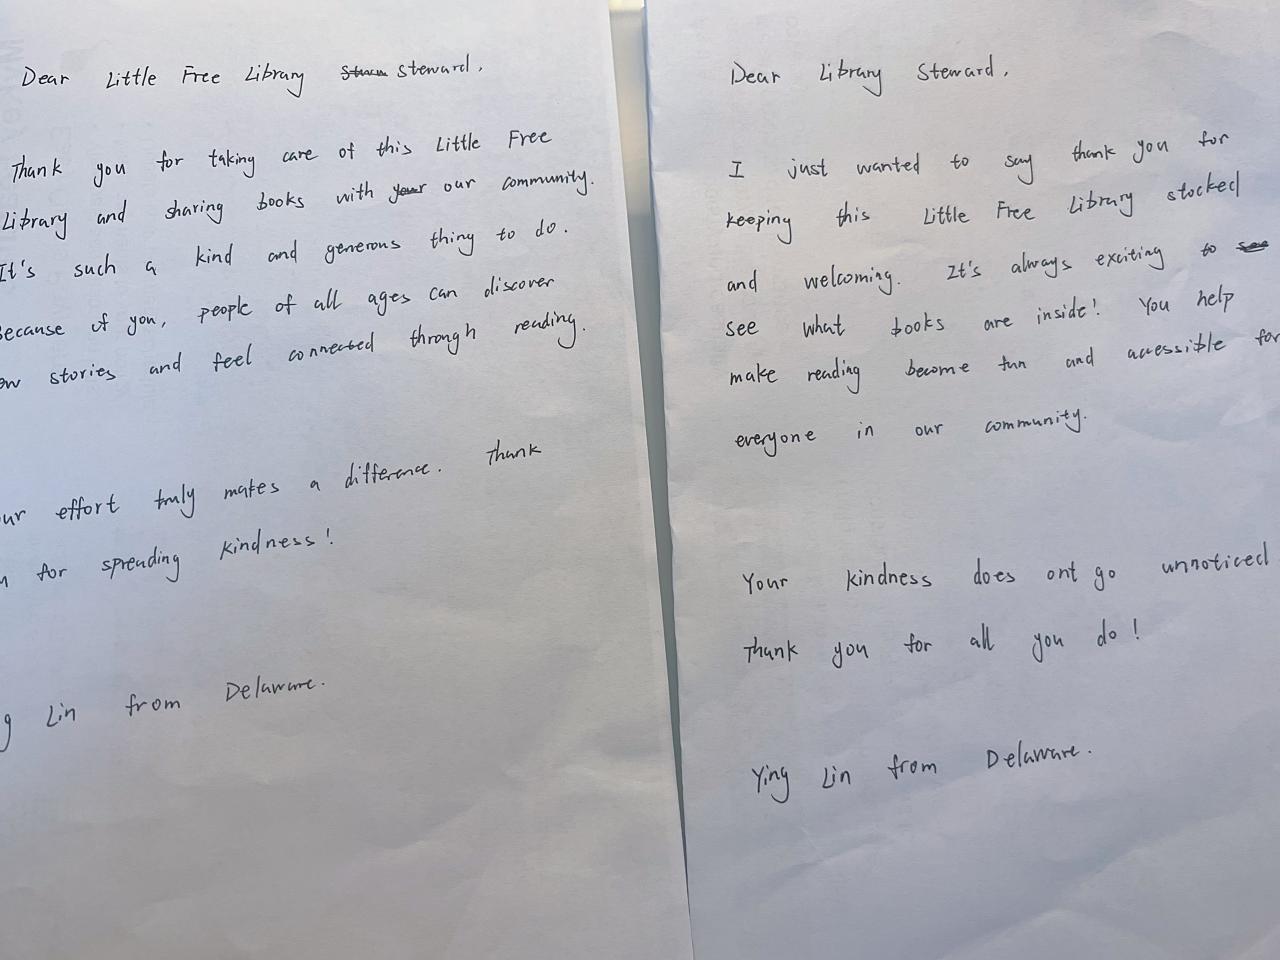 Dear Little Free Library steward,
Thank you for taking care of this Little Free
Library and sharing books with your our community.
It's such a kind and generous thing to do.
Because of you, people of all ages can discover
ew stories and feel connected through reading.
ur effort truly makes a difference. Thank
u for spreading kindness!
g Lin from Delaware.
Dear Library Steward,
I just wanted to say thank you for
keeping this Little Free Library stocked
and welcoming. It's always exciting to see
see what books are inside! You help
make reading become fun and accessible for
everyone in our community.
Your kindness does ont go unnoticed
Thank you for all you do!
Ying Lin from Delaware.